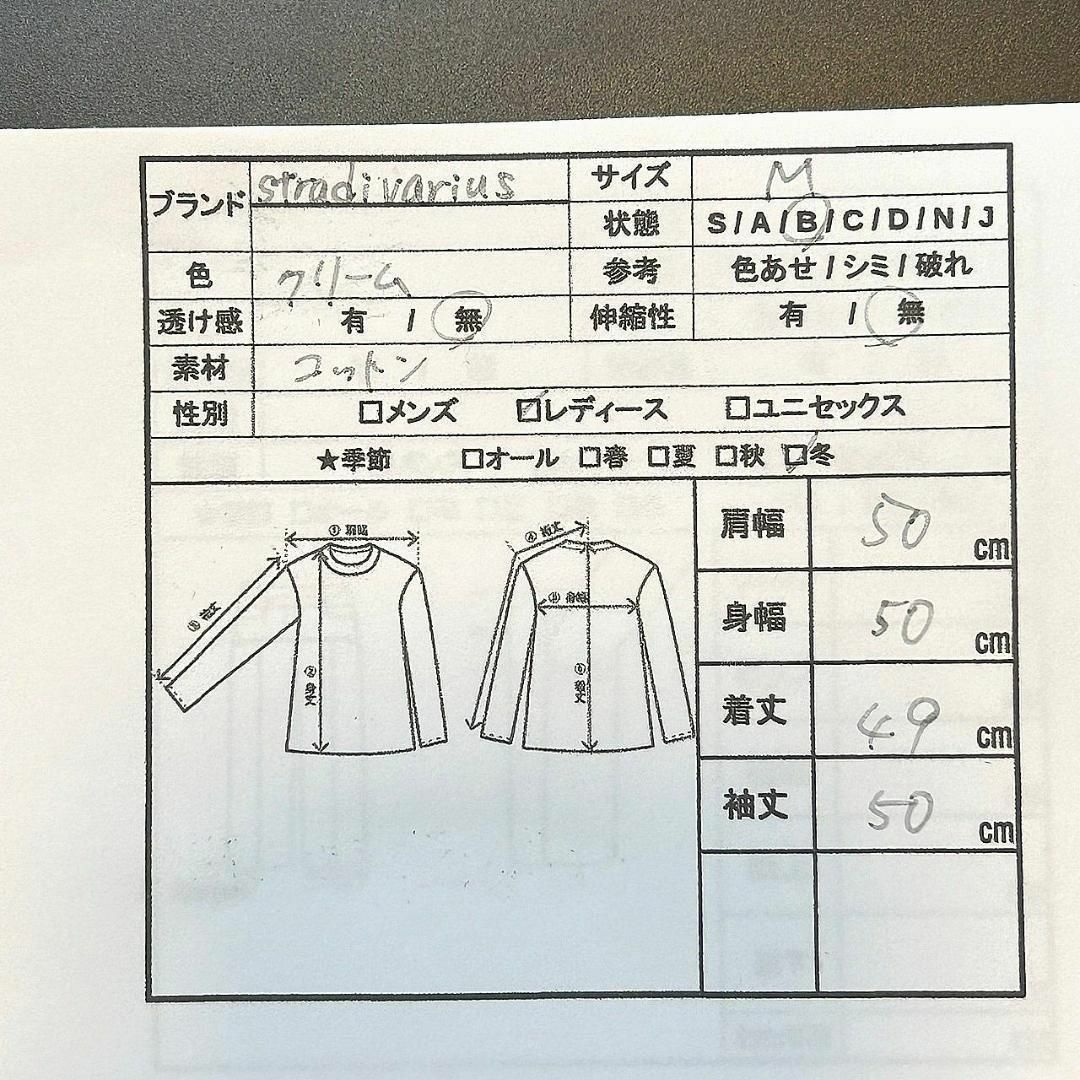 ブランド stradivarius サイズ M
状態 S/A/B/C/D/N/J
色 クリーム 参考 色あせ/シミ/破れ
透け感 有 / 無 伸縮性 有 / 無
素材 コットン
性別 □メンズ □レディース □ユニセックス
★季節 □オール □春 □夏 □秋 □冬
① 肩幅
② 身丈
③ 袖丈
④ 裄丈
肩幅 50 cm
身幅 50 cm
着丈 49 cm
袖丈 50 cm